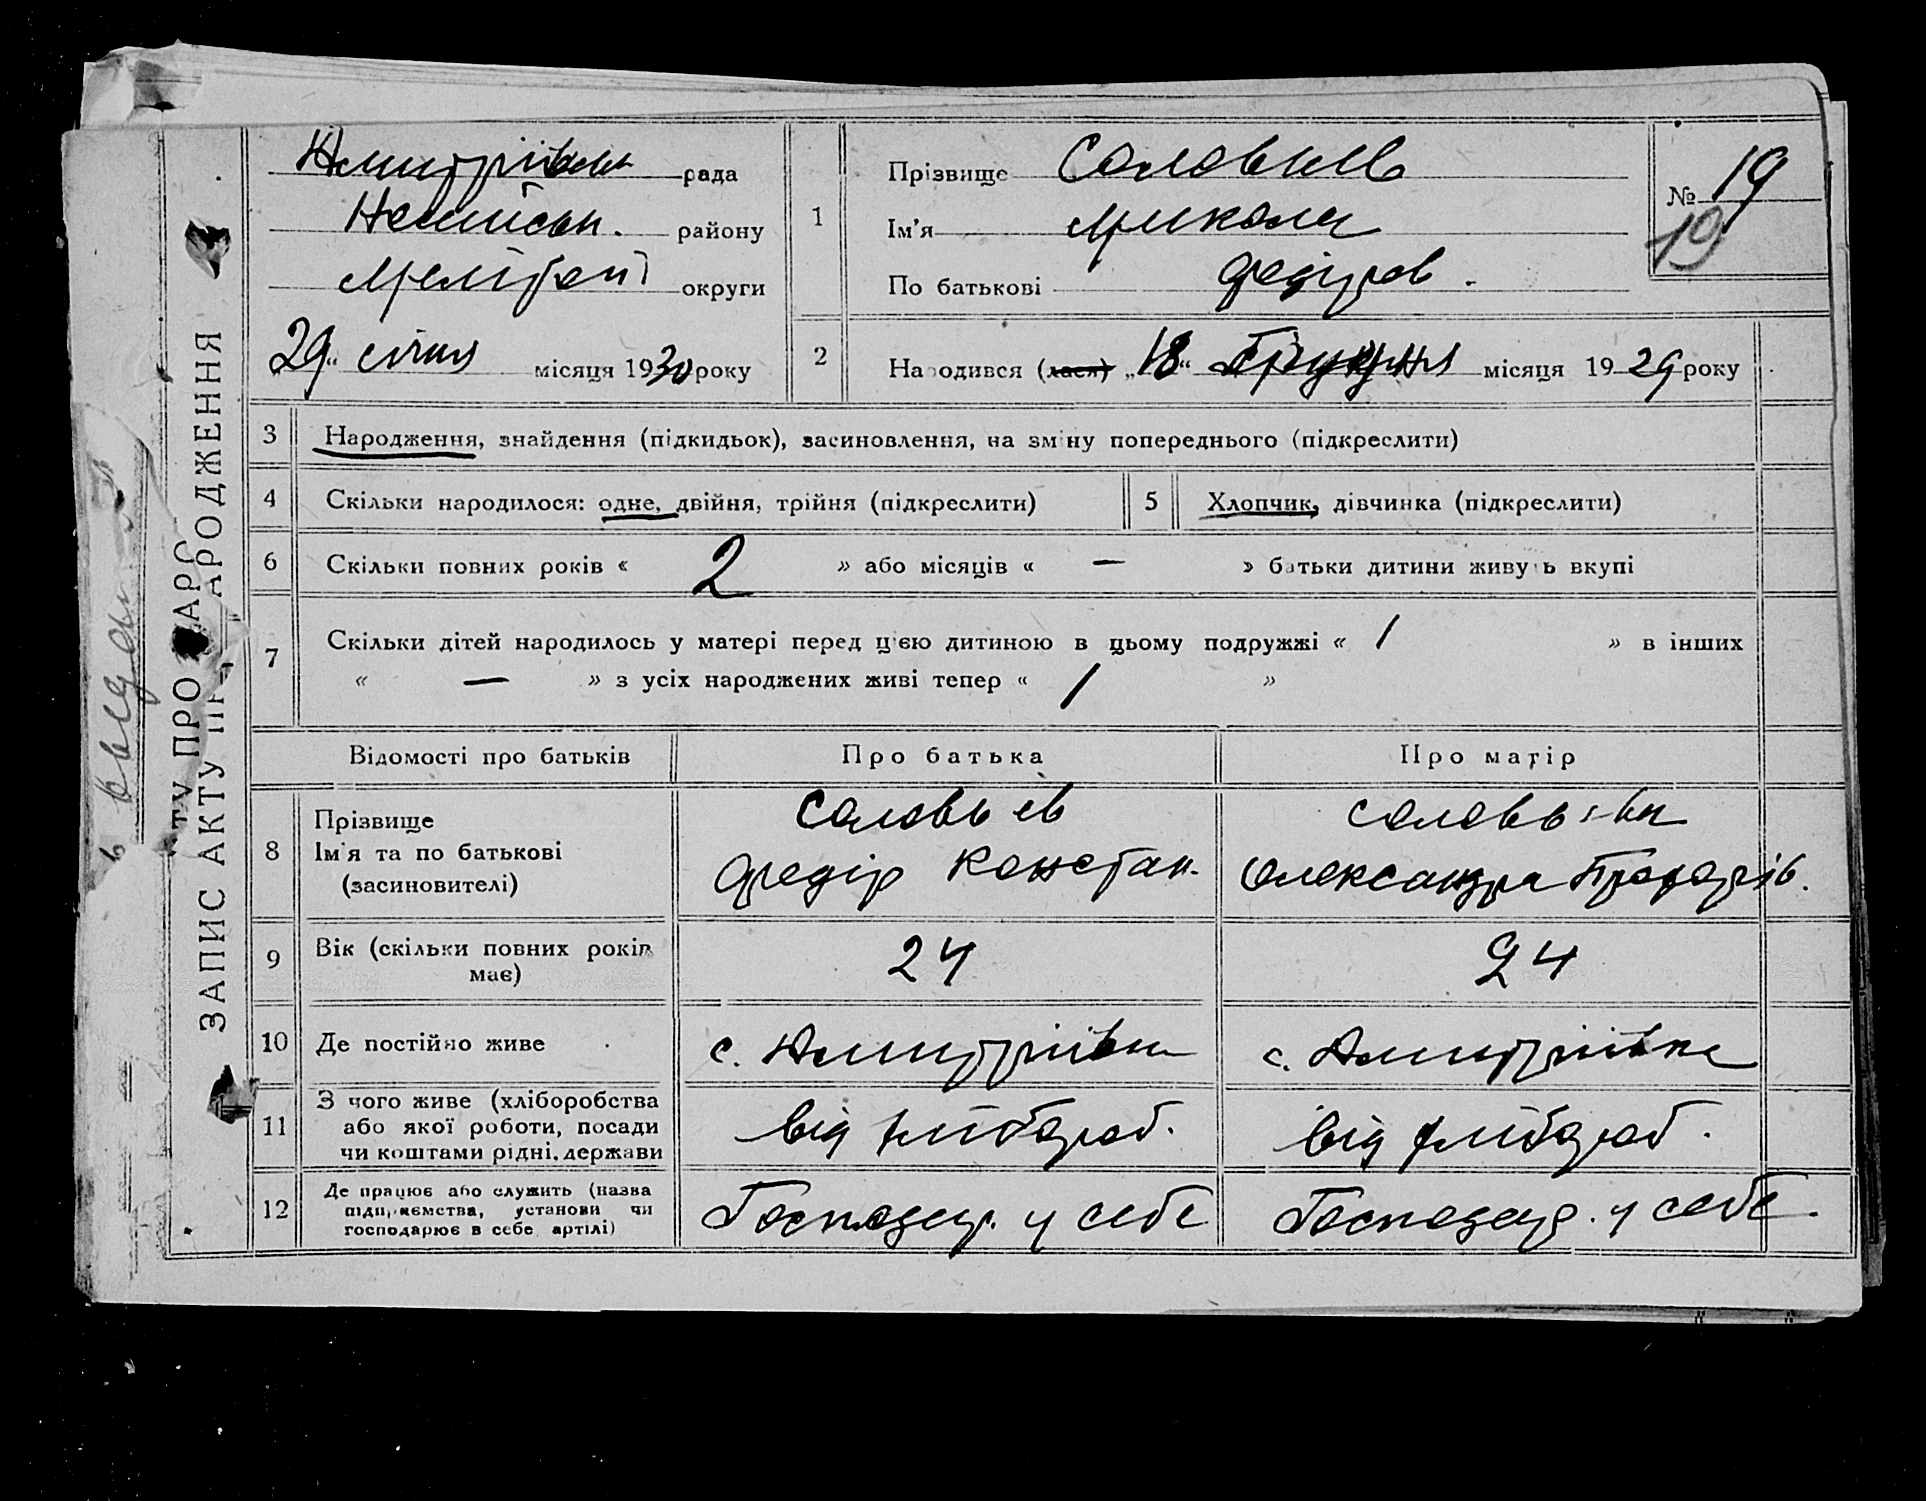 ЗАПИС АКТУ ПРО НАРОДЖЕННЯ
Дмитрівська рада
району
Мелітоп округи
„29“ січня місяця 1930 року
1
Прізвище Соловйов
Ім'я Микола
По батькові Федіров.
№ 19
19
2
Народився (лася) „18“ Грудня місяця 1929 року
3 Народження, знайдення (підкидьок), засиновлення, на зміну попереднього (підкреслити)
4 Скільки народилося: одне, двійня, трійня (підкреслити)
5 Хлопчик, дівчинка (підкреслити)
6 Скільки повних років « 2 » або місяців « — » батьки дитини живуть вкупі
7 Скільки дітей народилось у матері перед цією дитиною в цьому подружжі « 1 » в інших
« — » з усіх народжених живі тепер « 1 »
Відомості про батьків Про батька Про матір
8 Прізвище
Ім'я та по батькові
(засиновителі)
Соловьев
Федір Констан.
Соловьева
Олександра
9 Вік (скільки повних років
має)
24
24
10 Де постійно живе с. Дмитрівка с. Дмитрівка
11 З чого живе (хліборобства
або якої роботи, посади
чи коштами рідні, держави
від хлібороб.
від хлібороб.
12 Де працює або служить (назва
підприємства, установи чи
господарює в себе артілі)
Господар. у себе
Господар. у себе.